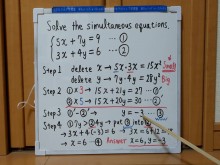 Solve the simultaneous equations.
{ 5x + 7y = 9 ··· ①
3x + 4y = 6 ··· ②
Step 1 delete x → 5x·3x = 15x² Small
delete y → 7y·4y = 28y² Big
Step 2 ① × 3 → 15x + 21y = 27 ··· ①'
② × 5 → 15x + 20y = 30 ··· ②'
Step 3 ①' - ②' → y = -3 ··· ③
Step 4 ② put ③ into ②
→ 3x + 4·(-3) = 6 → 3x = 6 + 12
→ x = 6 Answer x = 6, y = -3